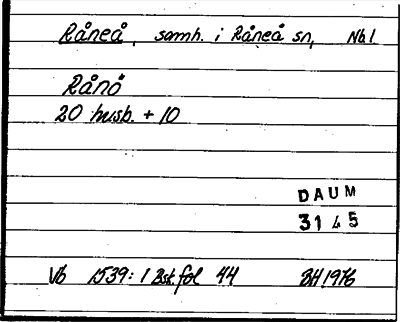 Råneå, samh. i Råneå sn, Nb l.
Rånö
20 husb. + 10
DAUM
3145
Vb 1539: 1 Bsk. fol 44 BH 1976